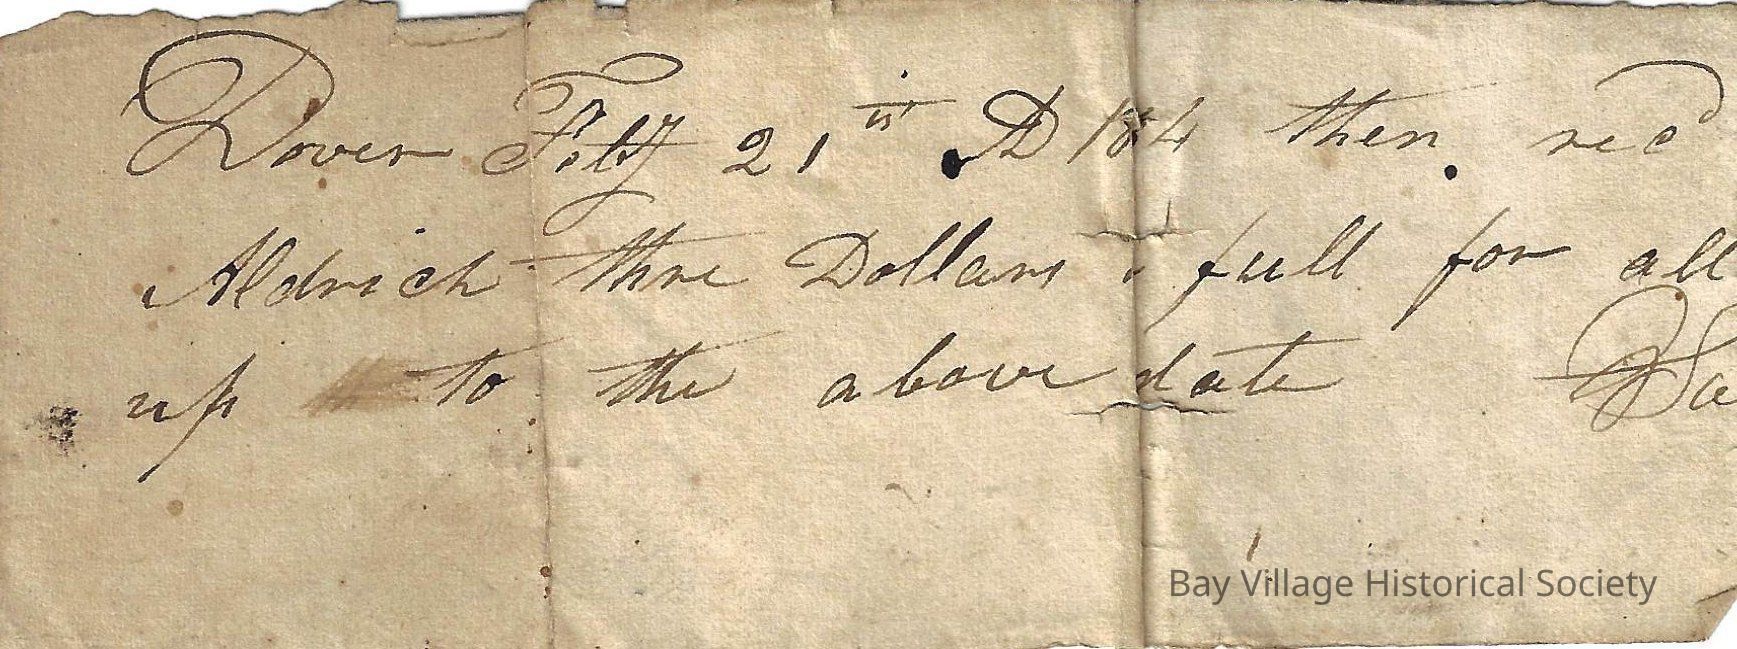 Dover Feby 21st AD 184 then rec'd
Aldrich thre Dollars full for all
up to the above date Sa
Bay Village Historical Society